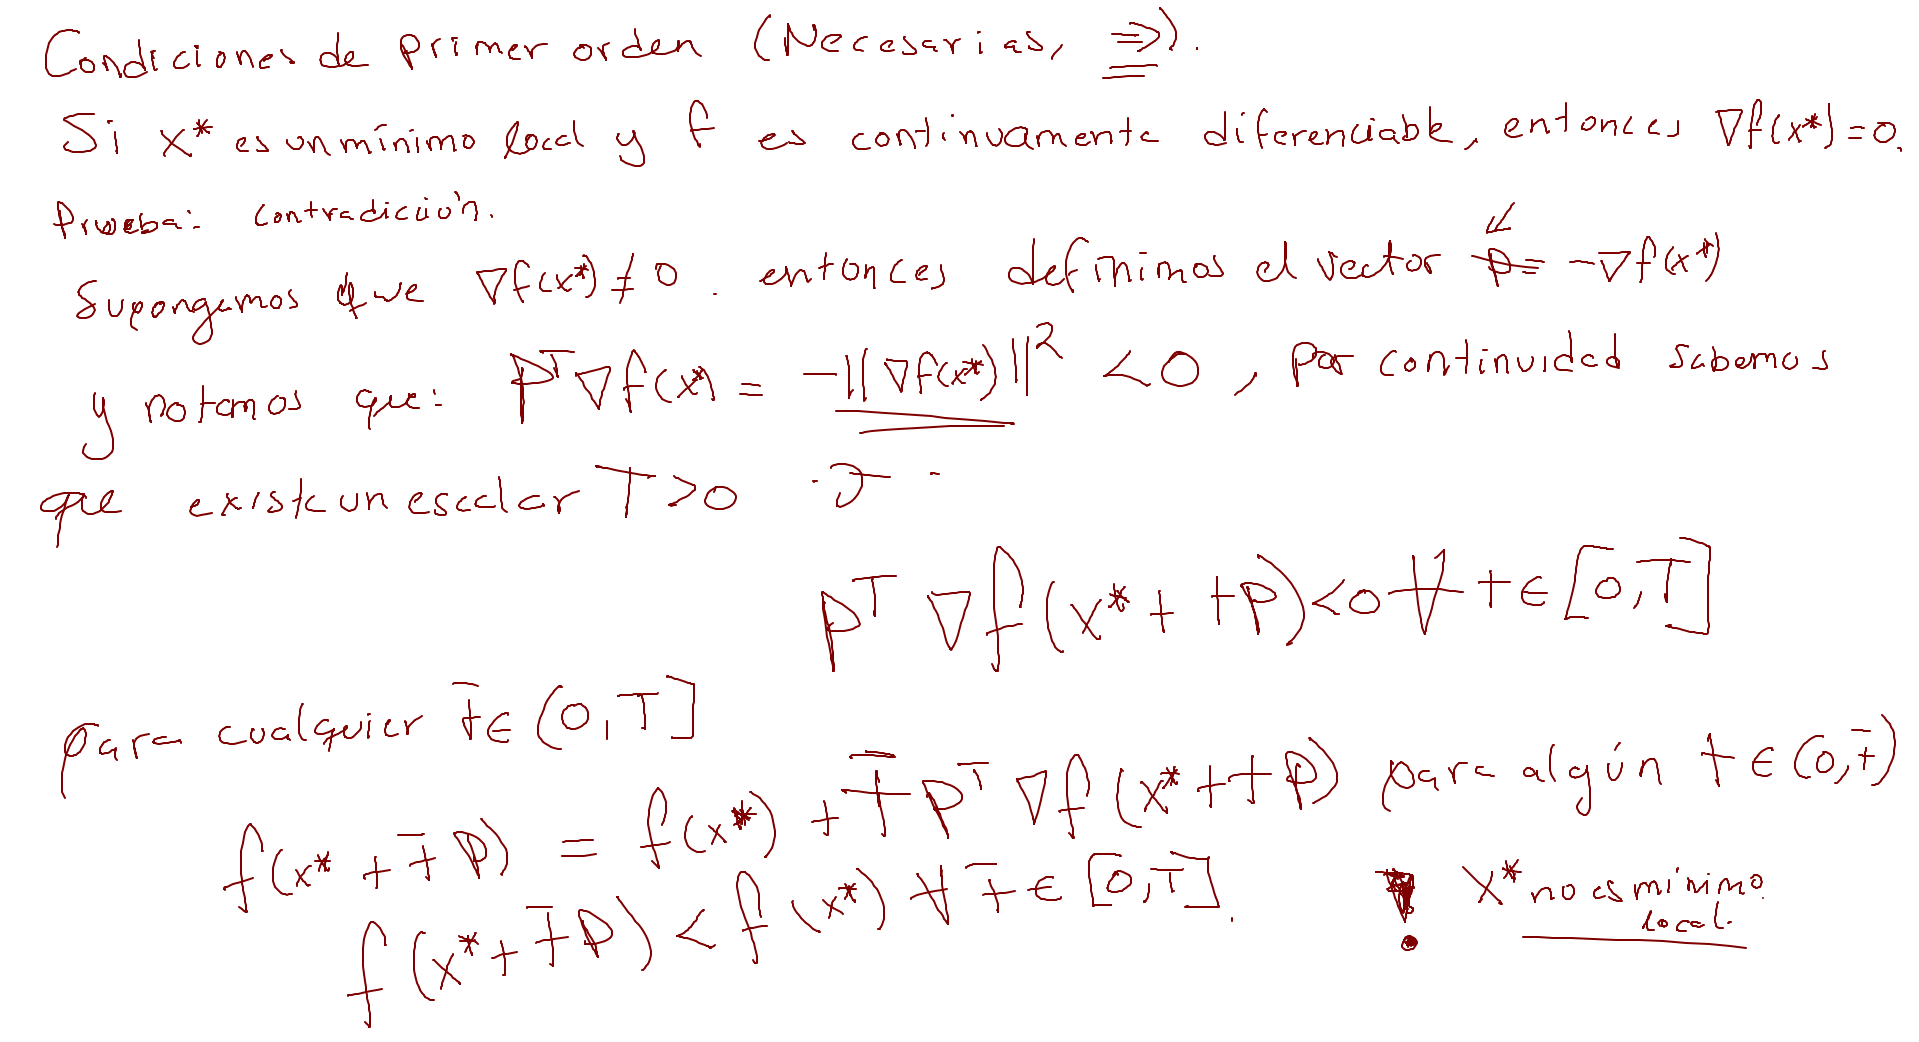 Condiciones de primer orden (Necesarias, ⇒).
Si x* es un mínimo local y f es continuamente diferenciable, entonces ∇f(x*)=0.
Prueba: contradicción.
Supongamos que ∇f(x*) ≠ 0. entonces definimos el vector p = -∇f(x*)
y notamos que: p^T ∇f(x*) = -||∇f(x*)||² < 0, por continuidad sabemos
que existe un escalar T>0 ·Ͽ·
p^T ∇f(x* + tp)<0 ∀ t ∈ [0,T]
para cualquier t̄ ∈ (0,T]
f(x* + t̄ p) = f(x*) + t̄ p^T ∇f(x* + tp) para algún t ∈ (0,t̄)
f(x* + t̄p) < f(x*) ∀ t̄ ∈ [0,T]. ! x* no es mínimo
local.